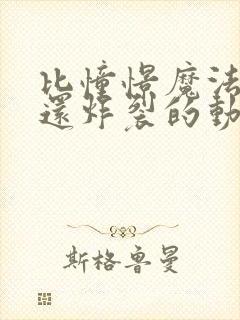 比憧憬魔法
還炸裂的動
斯格魯曼